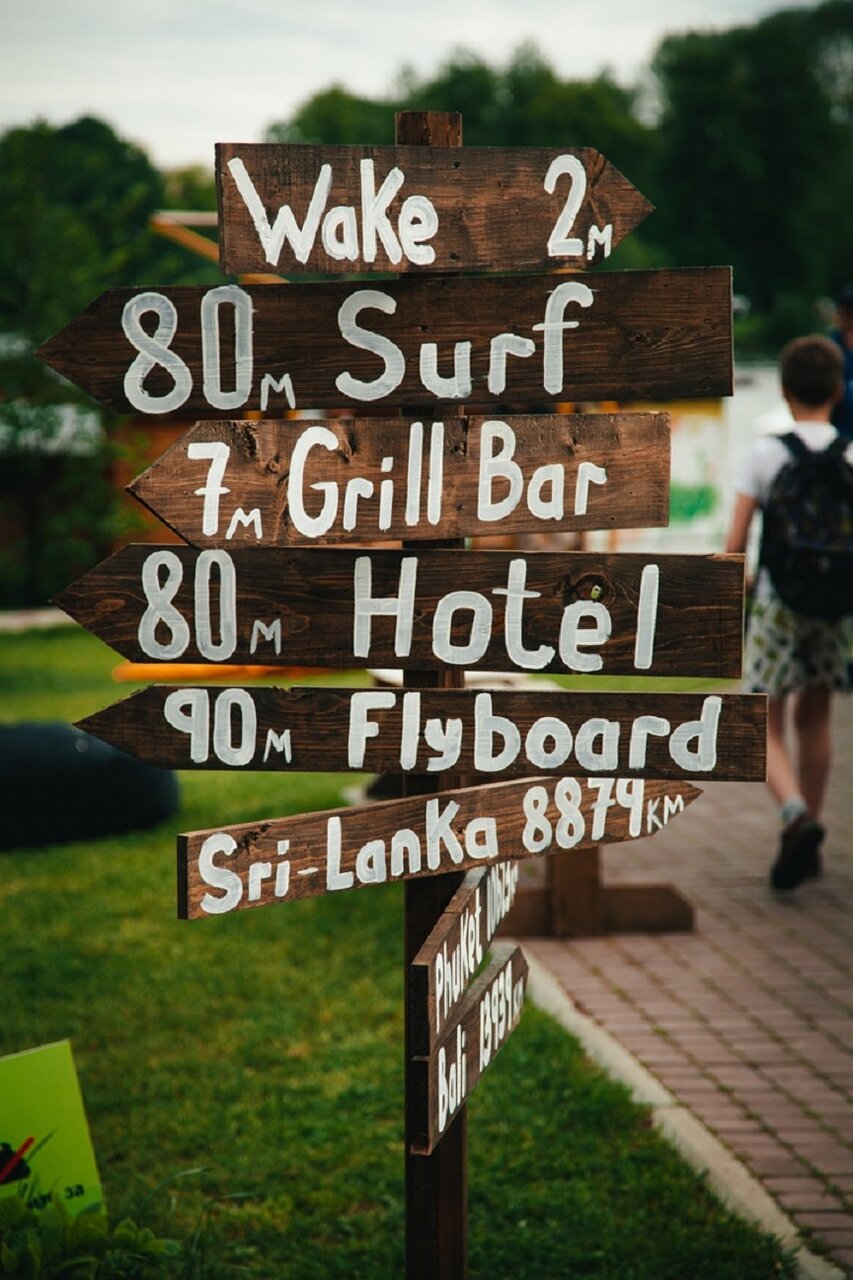 Wake 2M
80M Surf
7M Grill Bar
80M Hotel
90M Flyboard
Sri-Lanka 8879KM
Phuket
Bali